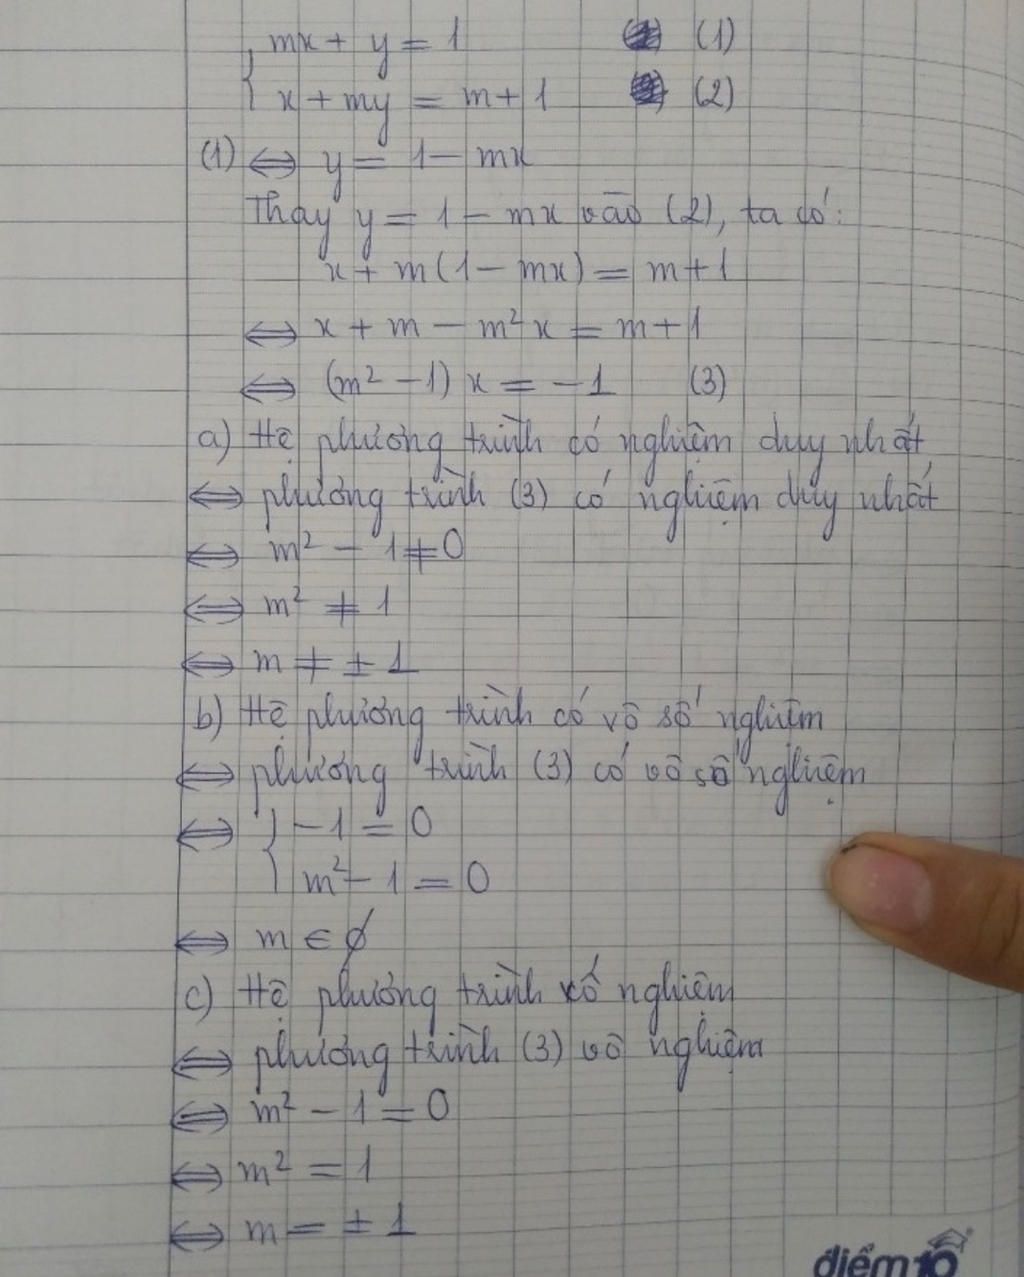 mx + y = 1 (1)
x + my = m + 1 (2)
(1) ⇔ y = 1 − mx
Thay y = 1 − mx vào (2), ta có:
x + m(1 − mx) = m + 1
⇔ x + m − m²x = m + 1
⇔ (m² − 1) x = −1 (3)
a) Hệ phương trình có nghiệm duy nhất
⇔ phương trình (3) có nghiệm duy nhất
⇔ m² − 1 ≠ 0
⇔ m² ≠ 1
⇔ m ≠ ± 1
b) Hệ phương trình có vô số nghiệm
⇔ phương trình (3) có vô số nghiệm
⇔ { −1 = 0
m² − 1 = 0
⇔ m ∈ ∅
c) Hệ phương trình vô nghiệm
⇔ phương trình (3) vô nghiệm
⇔ m² − 1 = 0
⇔ m² = 1
⇔ m = ± 1
điểm10